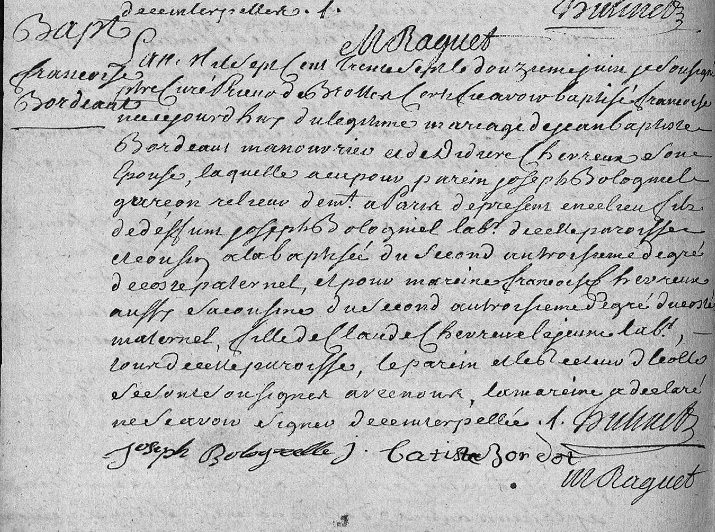 decemterpellér . 1 .
Duhnet
M Raguet
Bapt
francoise
Bordeaut
L'an Mil sept Cent trente sept le douzieme juin je soussigné
ptre Curé Prieur de Brottes Certifie avoir baptisé francoise
nee ce jourd'huy du legitime mariage de jean baptiste
Bordeaut manouvrier et de Didiere Chevreux son
Epouse, laquelle a eu pour parein joseph Bologniel
garcon relieur demt. a Paris de present en ce lieu fils
de deffunt joseph Bologniel labr. de cette paroisse
et cousin a la baptisée du second au troisieme degré
de costé paternel, et pour mareine francoise Chevreux
aussy sa cousine du second au troisieme degré du costé
maternel, fille de Claude Chevreux le jeune labr. ,
tous de cette paroisse, le parein et le recteur d'Ecolle
se sont soussignés avec nous, la mareine a declaré
ne scavoir signer de ce interpellée . 1 . Duhnet
joseph Bolognelle j . Batiste Bordot
M Raguet